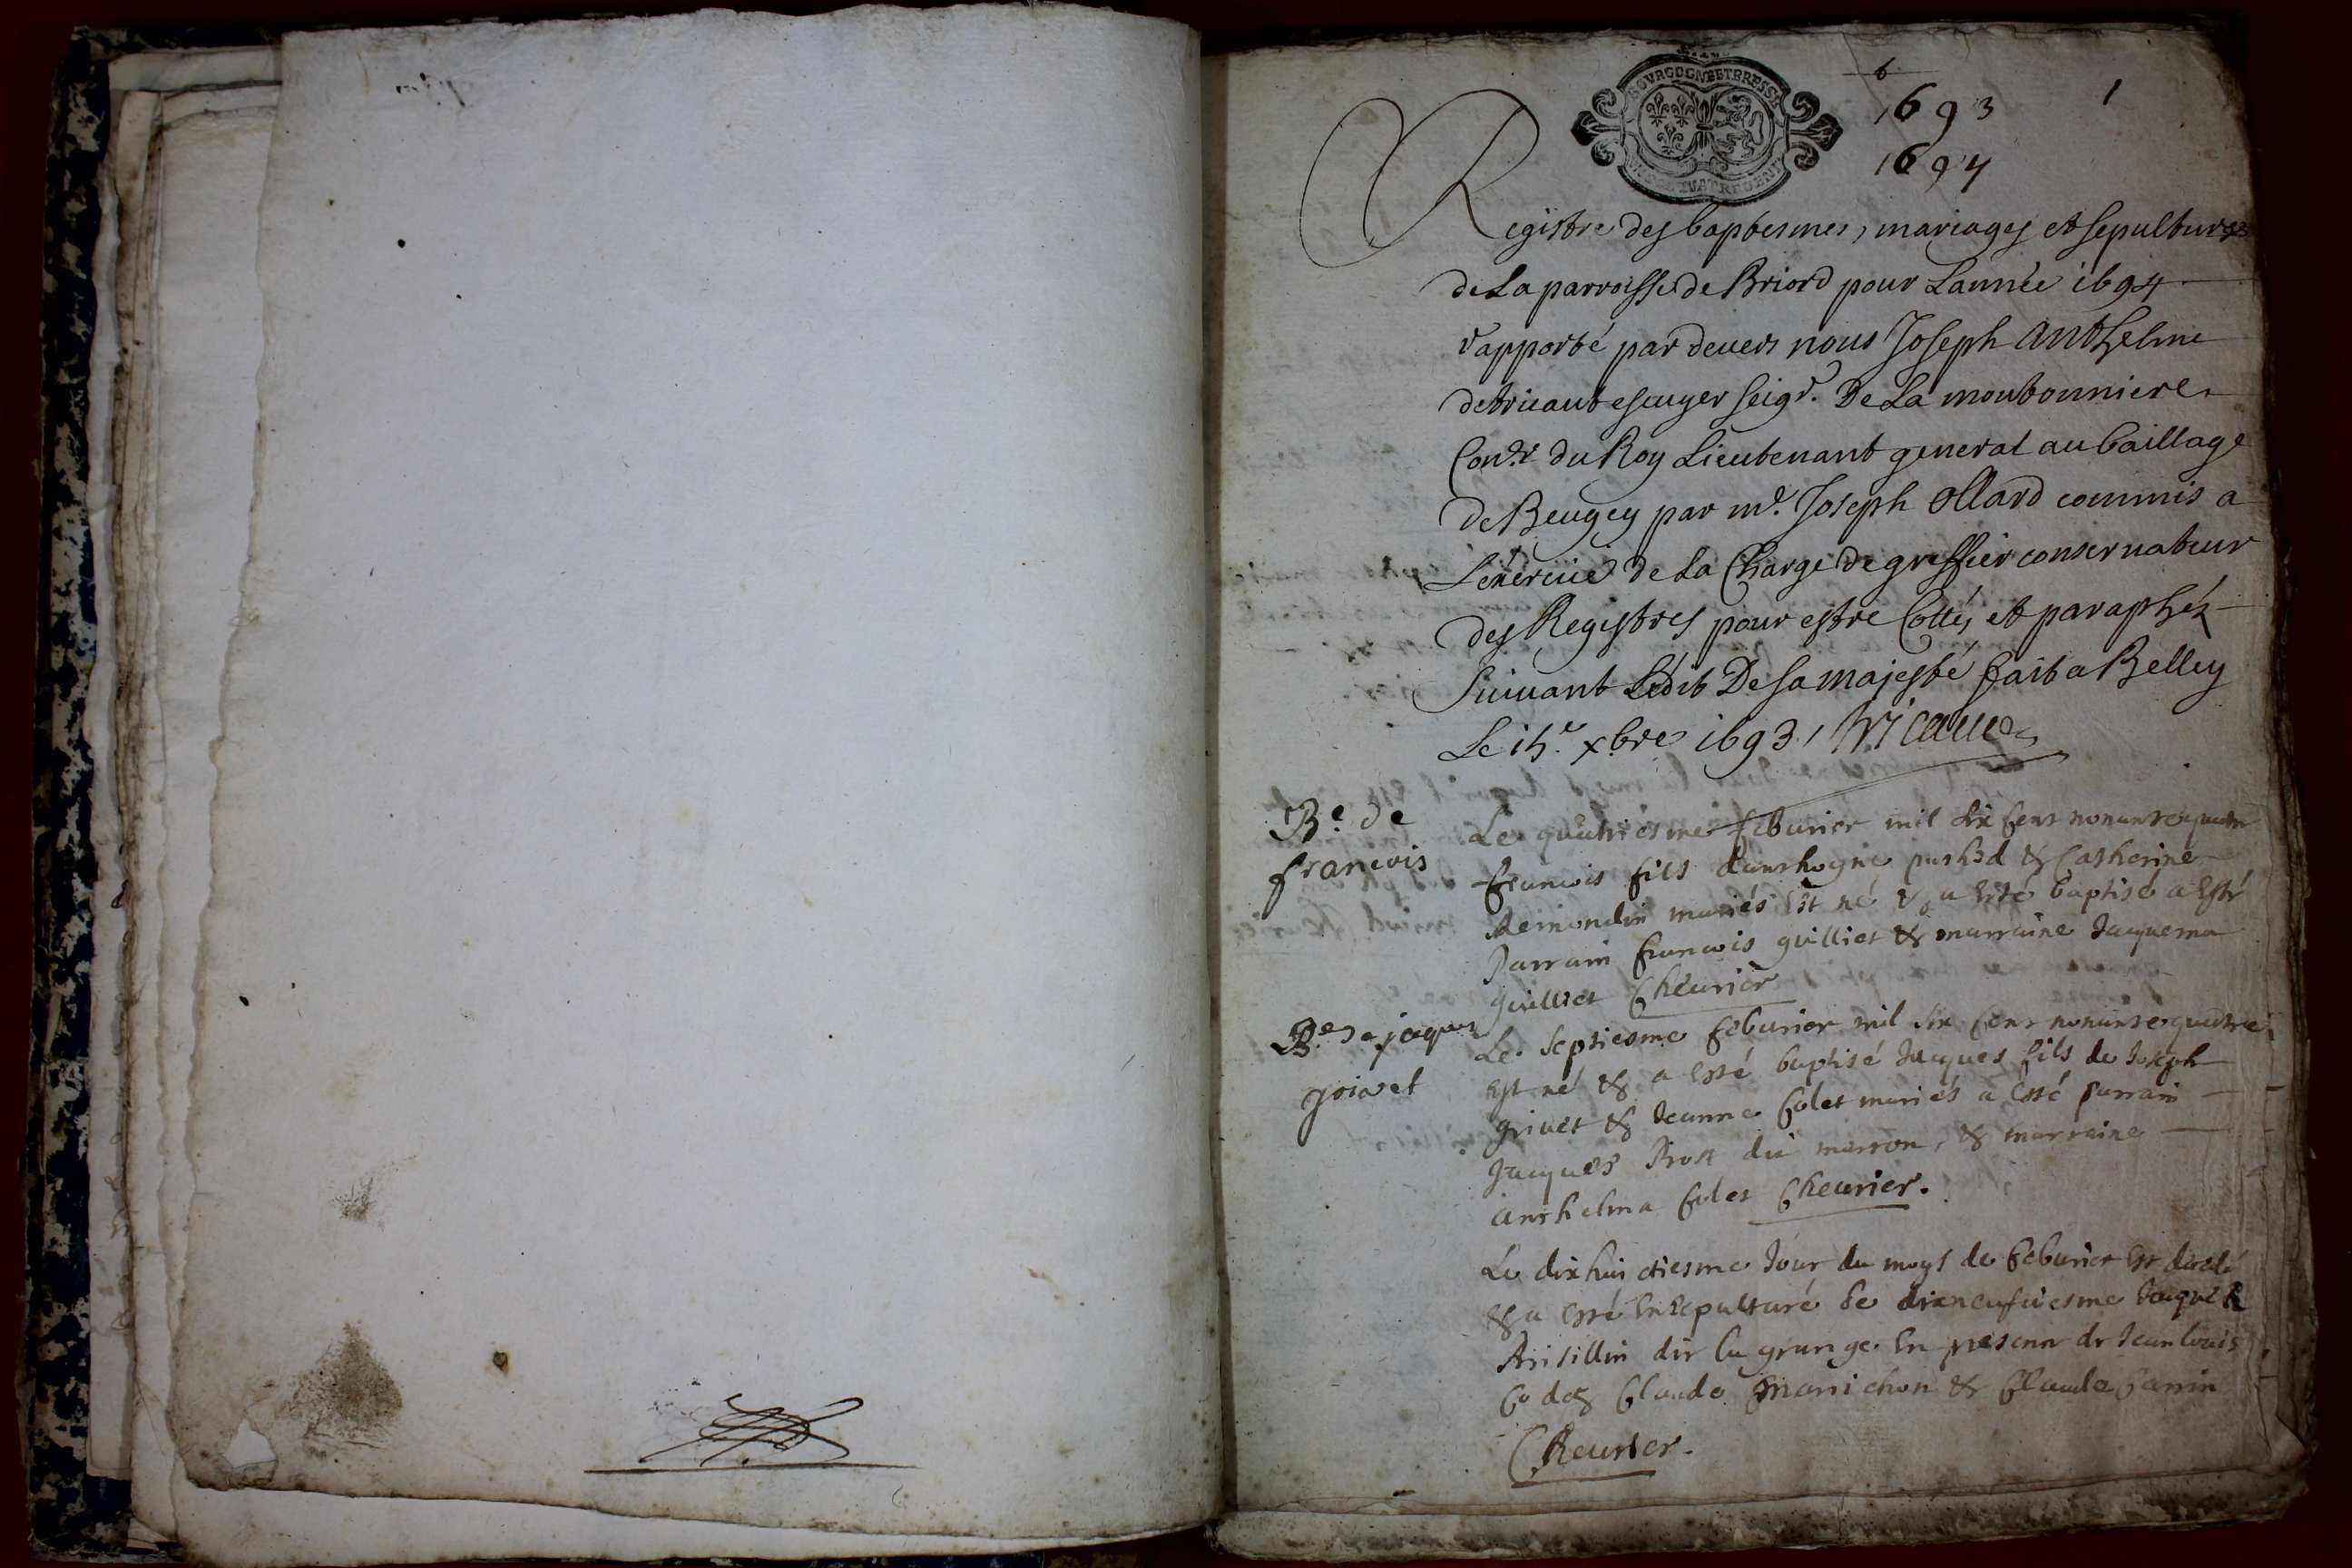 BOURGOGNE ET BRESSE
6
1693
1
1694
Registre des baptesmes, mariages et sepultures
de La parroisse de Briord pour L'année 1694
rapporté par devers nous Joseph Anthelme
detricaut escuyer seigr. De La moutonniere
Conr. du Roy Lieutenant general au baillage
de Beugey par me. Joseph Ollard commis a
L'exercice de La Charge de greffier conservateur
des Registres pour estre Cottés et paraphéz
Suivant L'édit De sa majesté fait a Belley
Le 15e. xbre 1693
Be. de
francois
Le quatriesme feburier mil six cens nonante quatre
francois fils d'anthoyne & Catherine
mariés est né & a esté baptisé a esté
parrain francois guilliet & marraine Jaquema
guilliet Cheurier
Be. de jaques
grivet
Le septiesme feburier mil six cens nonante quatre
est né & a esté baptisé Jacques fils de Joseph
griuet & Jeanne Colet mariés a esté parrain
Jacques dit marron, & marraine
anthelma Colet Cheurier.
Le dixhuictiesme Jour du moys de feburier est décédé
& a esté ensepulturé le dixneufuiesme
dit la grange en presence de Jean louis
Claude manichon & Claude
Cheurier.